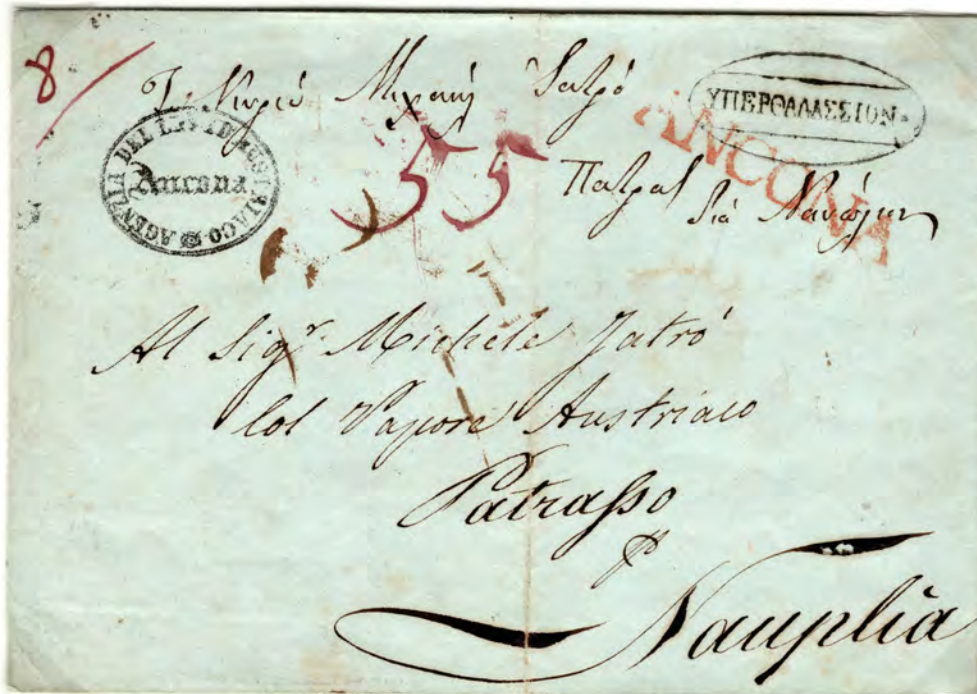 8
Κυριω Μιχαήλ Ιατρό
ΥΠΕΡΘΑΛΑΣΣΙΟΝ
AGENZIA DEL LLOYD AUSTRIACO
Ancona
55
ANCONA
Πατρας
διά Ναύπλιον
Al Sigr. Michele Jatró
Col Vapore Austriaco
Patrasso
p
Nauplia